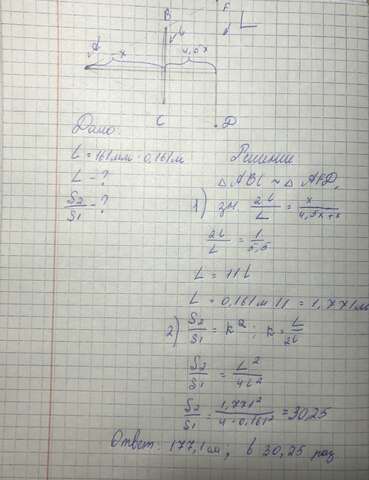 B F
l L
A x 4,5x
C D
Дано:
l = 161мм = 0,161м
L - ?
S2/S1 - ?
Решение
△ABC ~ △AFD,
1) зн 2l/L = x/4,5x+x
2l/L = 1/5,5
L = 11l
L = 0,161м·11 = 1,771м
2) S2/S1 = k²; k = L/2l
S2/S1 = L²/4l²
S2/S1 = 1,771²/4·0,161² = 30,25
Ответ: 177,1см; в 30,25 раз